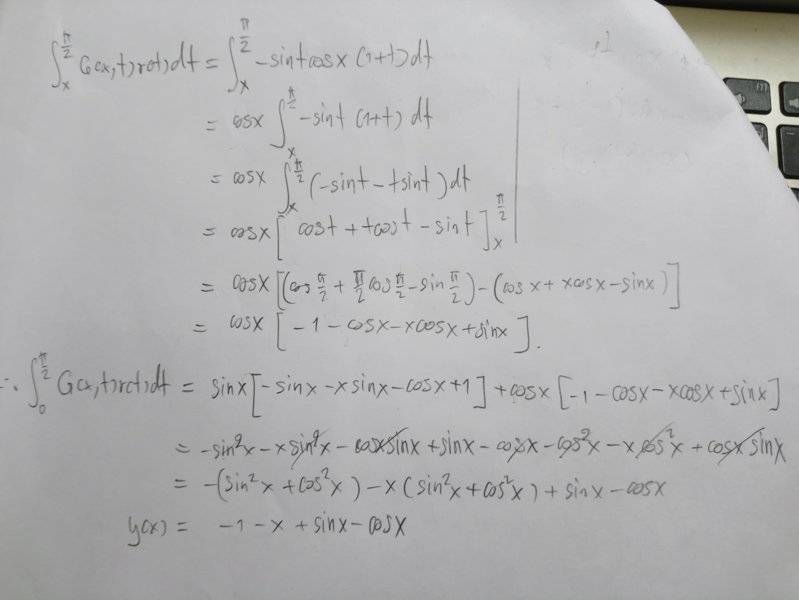 ∫_x^{π/2} G(x,t)r(t)dt = ∫_x^{π/2} -sintcosx (1+t)dt
= cosx ∫_x^{π/2} -sint (1+t) dt
= cosx ∫_x^{π/2} (-sint - tsint)dt
= cosx [cost + tcost - sint]_x^{π/2}
= cosx [(cos π/2 + π/2 cos π/2 - sin π/2) - (cosx + xcosx - sinx)]
= cosx [-1 - cosx - xcosx + sinx].
∴ ∫_0^{π/2} G(x,t)r(t)dt = sinx[-sinx - xsinx - cosx + 1] + cosx [-1 - cosx - xcosx + sinx]
= -sin²x - xsin²x - cosxsinx + sinx - cosx - cos²x - xcos²x + cosxsinx
= -(sin²x + cos²x) - x(sin²x + cos²x) + sinx - cosx
y(x) = -1 - x + sinx - cosx